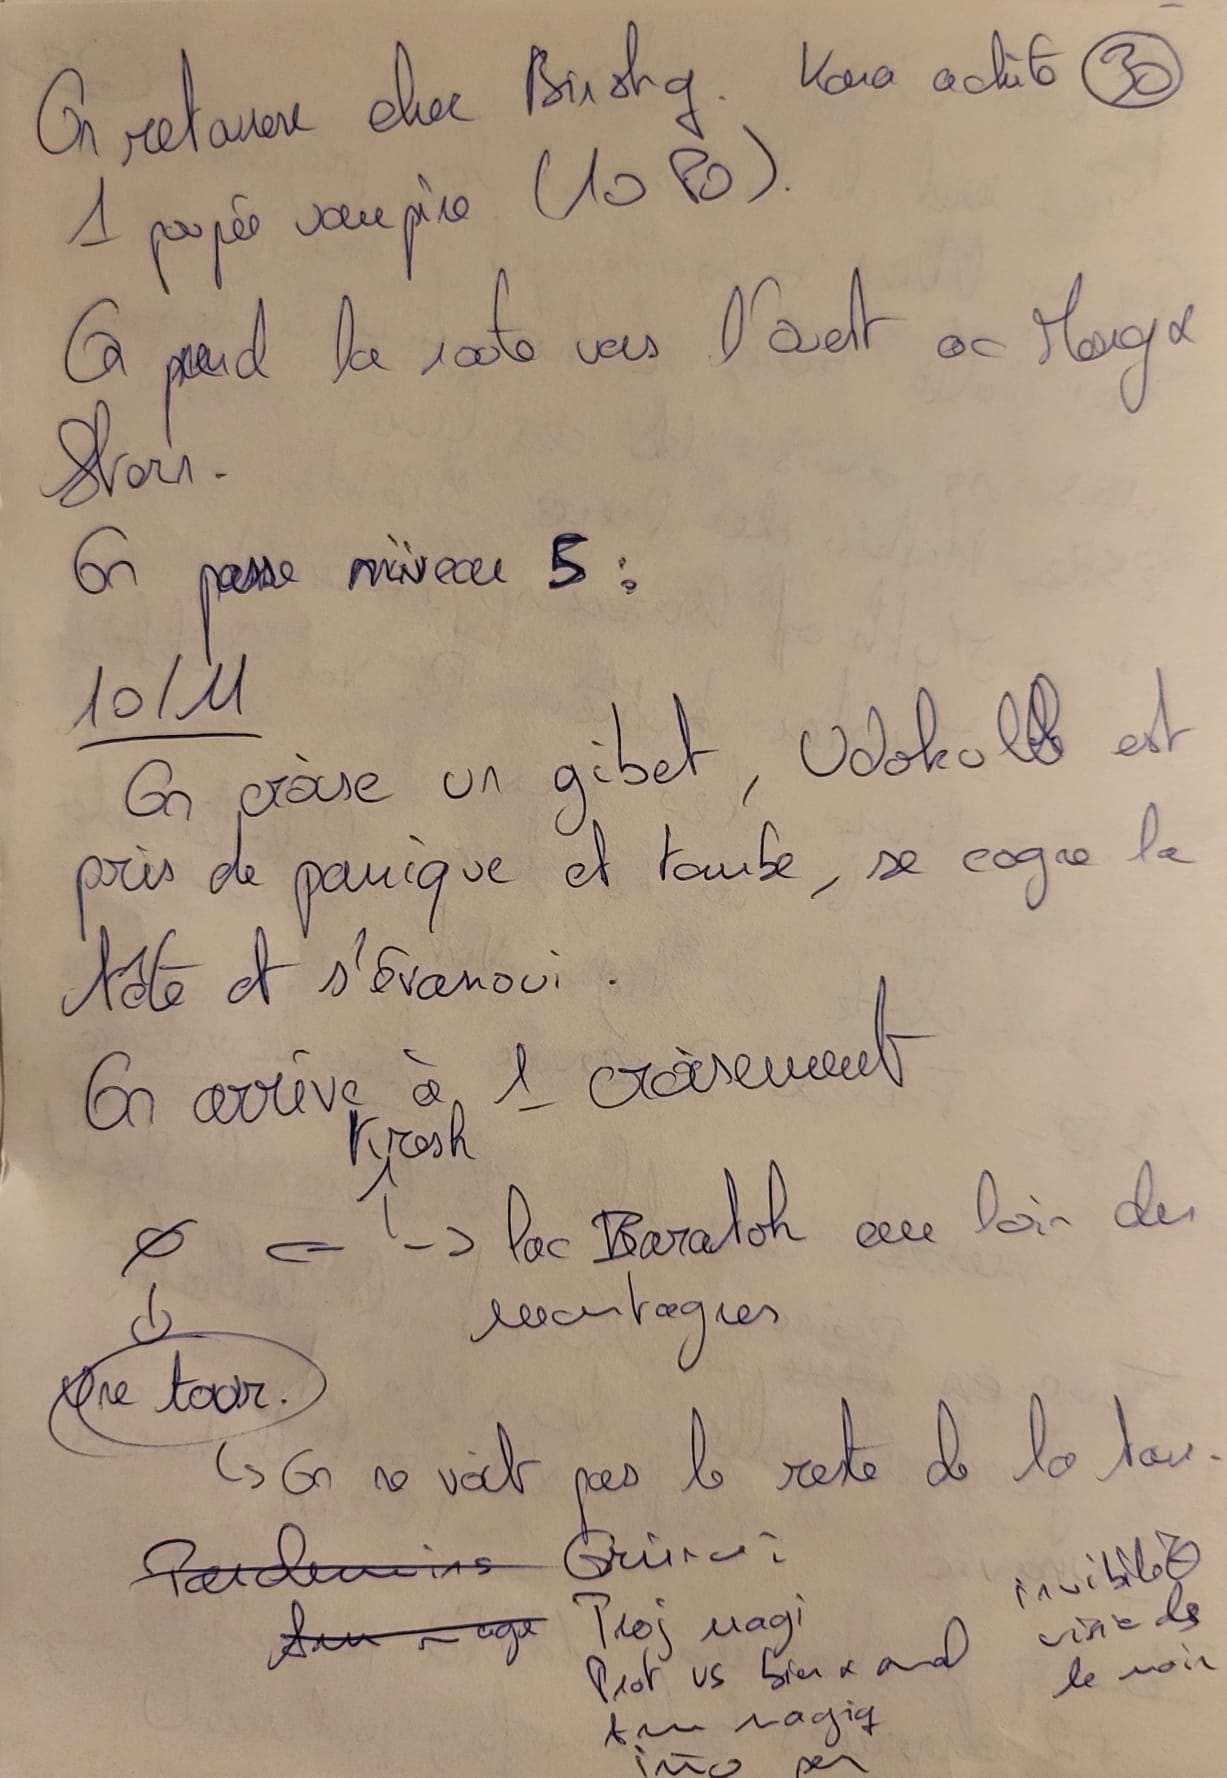 On retourne chez Binshg. Kara achète 30
1 poupée vampire (10 PO).
On prend la route vers l'ouest ac Morg &
Storn.
On passe niveau 5 :
10/11
On croise un gibet, Udokolb est
pris de panique et tombe, se cogne la
tête et s'évanoui.
On arrive à 1 croisement
Krosh
Ø ← ↑ → lac Baratok au loin des
montagnes
↓
Une tour.
↳ On ne voit pas le reste de la tour.
Proj magi
Prot vs bien & mal
Arm magiq
invibilité
vision ds
le noir